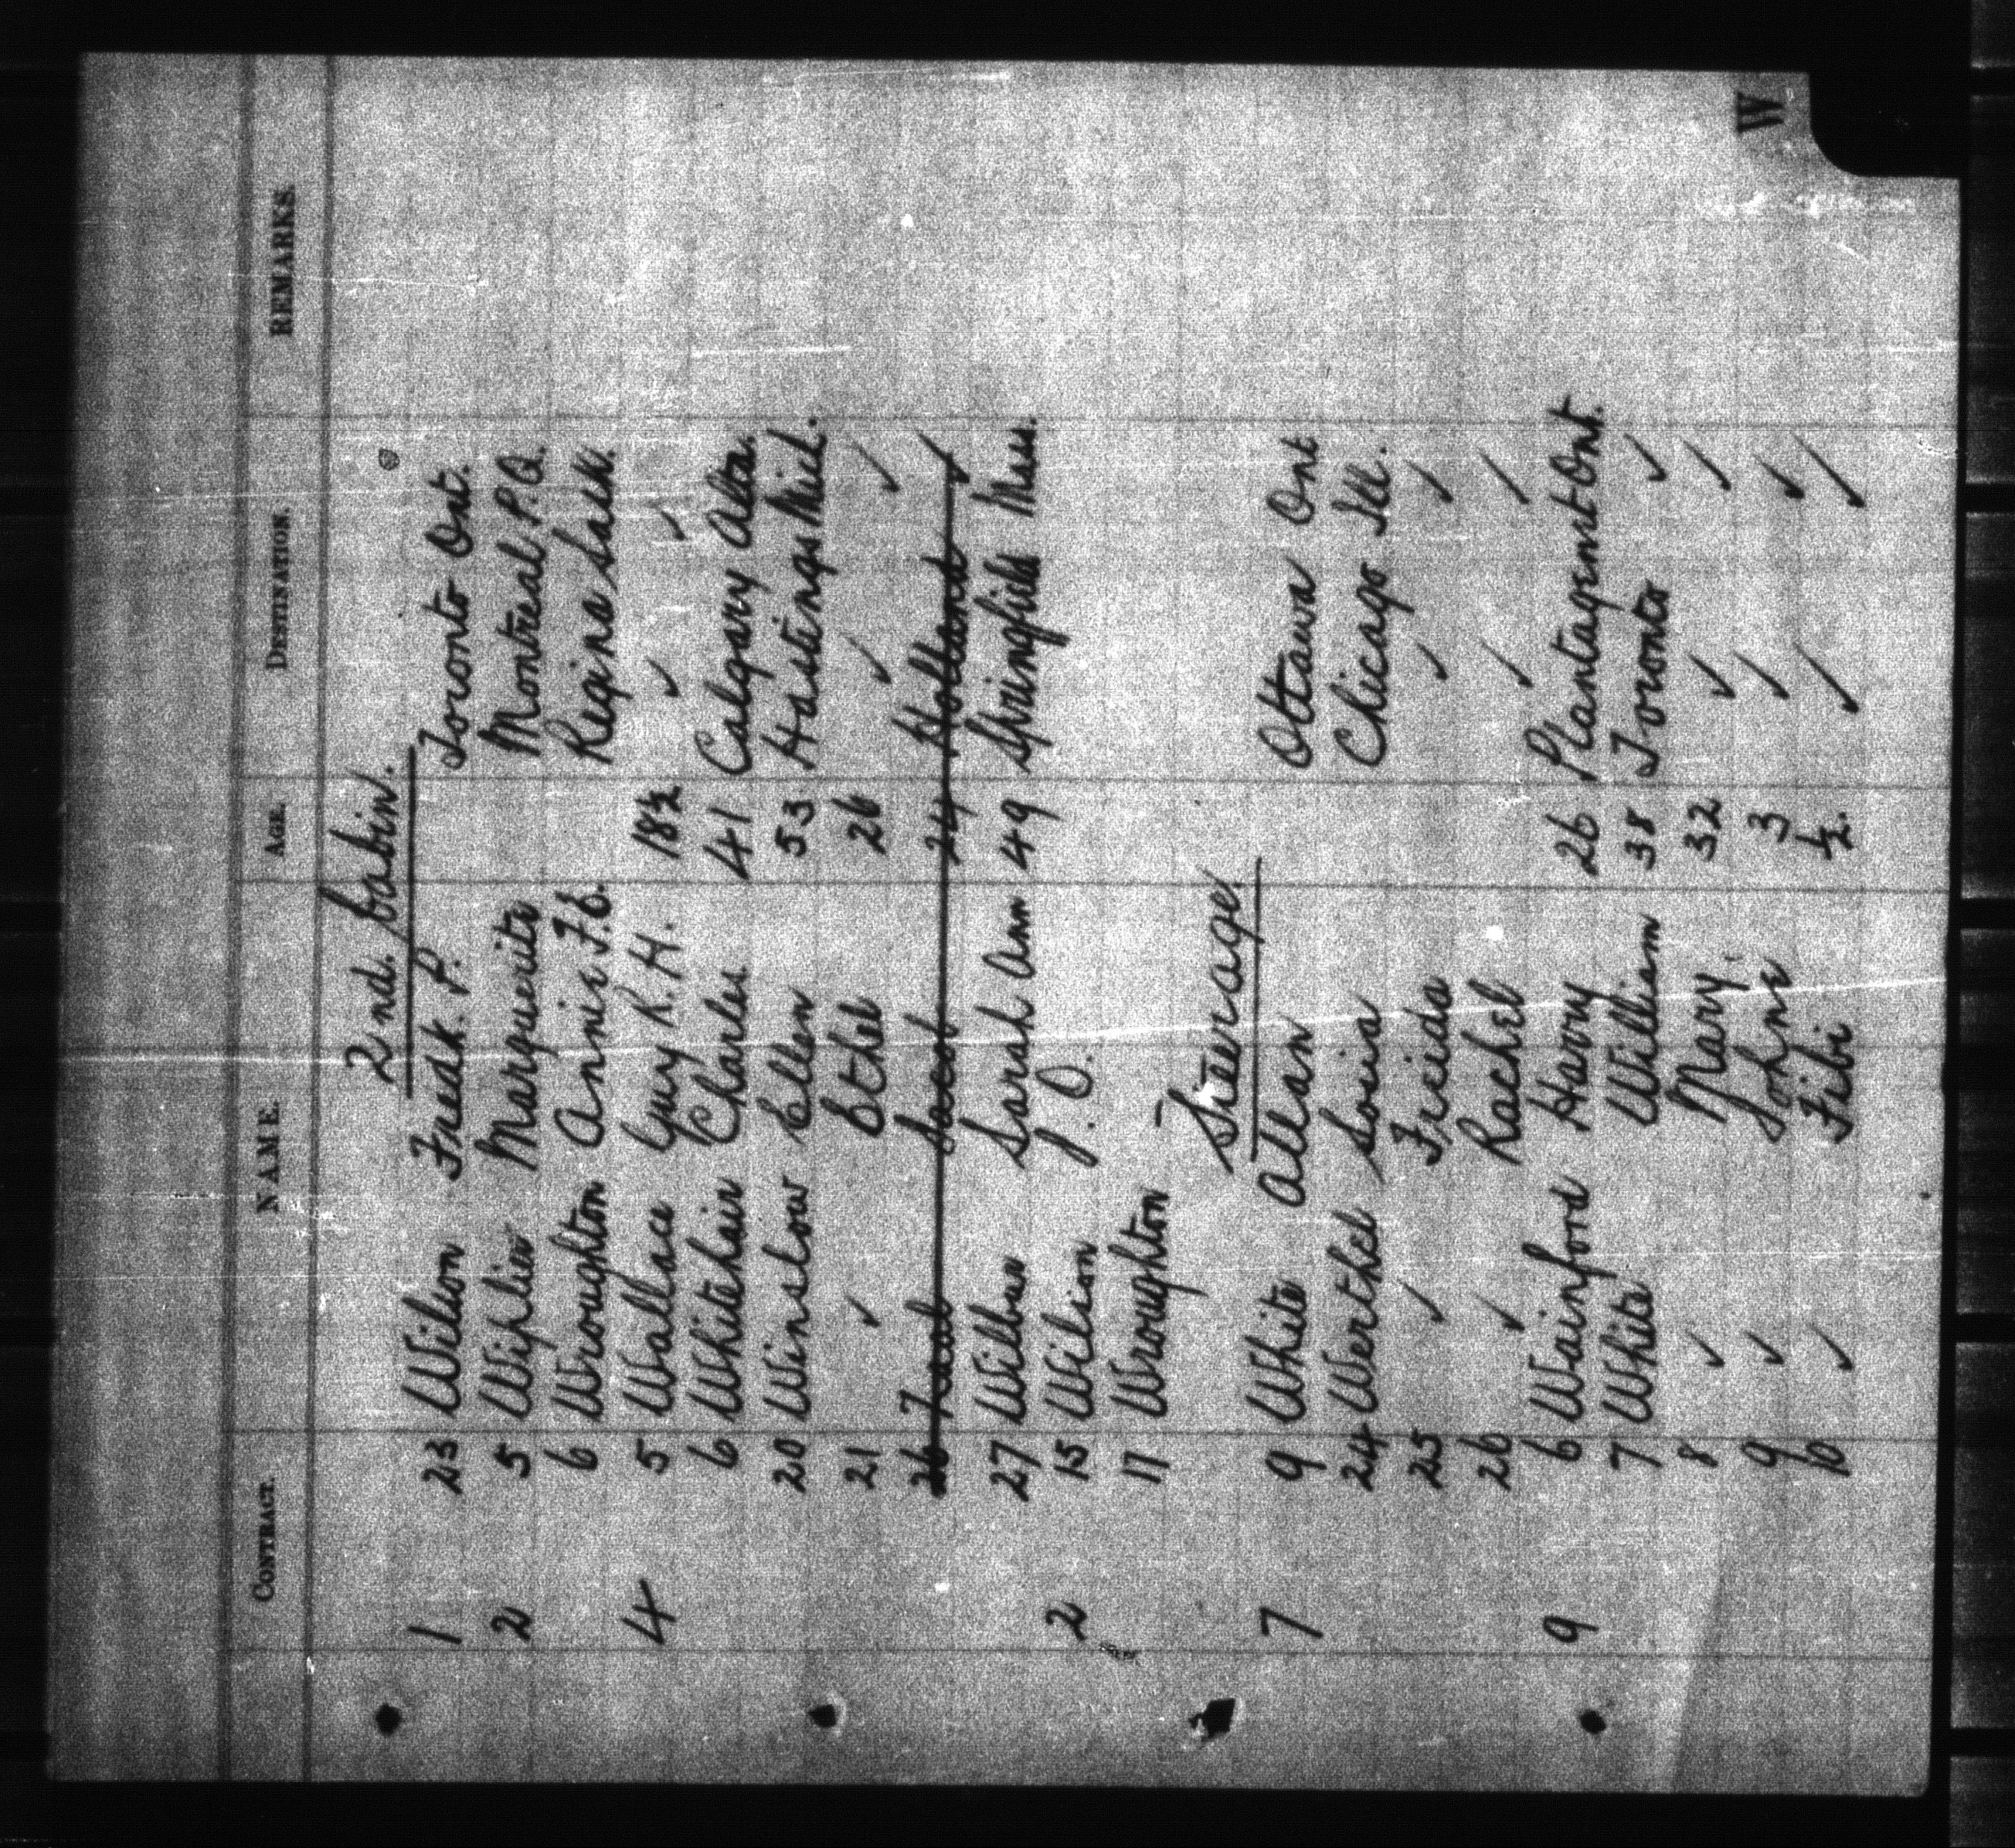 W
CONTRACT. NAME. AGE. DESTINATION. REMARKS.
2nd. Cabin.
1 23 Wilson Fredk. P. Toronto Ont.
2 5 Wiplier Marguerite Montreal P.Q.
6 Wroughton Annie F.E. Regina Sask.
4 5 Wallace Guy R.H. 18½ ✓ ✓
6 Whitehair Charles 41 Calgary Alta.
20 Winslow Ellen 53 Hastings Mich.
21 ✓ Ethel 26 ✓ ✓
26 Jacob 24 Holland ✓
27 Wilbur Sarah Ann 49 Springfield Mass.
2 15 Wilson J. O.
17 Wroughton –
Steerage
7 9 White Allan Ottawa Ont
24 Werthel Louis Chicago Ill.
25 ✓ Frieda ✓ ✓
26 ✓ Rachel ✓ ✓
9 6 Wainford Harry 26 Plantagenet Ont.
7 White William 38 Toronto ✓
8 ✓ Mary. 32 ✓ ✓
9 ✓ John 3 ✓ ✓
10 ✓ Fibi ½. ✓ ✓